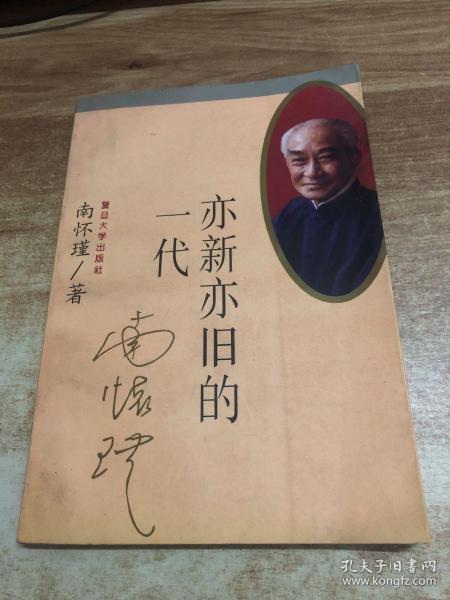 亦新亦旧的
一代
复旦大学出版社
南怀瑾/著
南怀瑾
孔夫子旧书网
www.kongfz.com